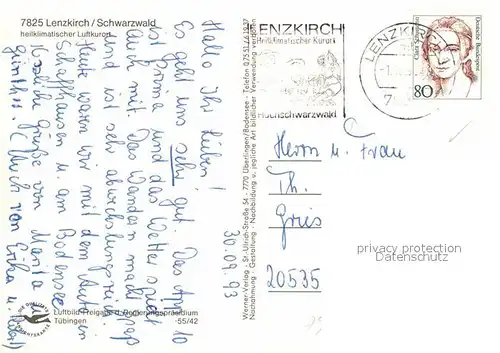 7825 Lenzkirch / Schwarzwald
heilklimatischer Luftkurort
Hallo Ihr Lieben!
Es geht uns sehr gut. Das App. 10
ist Prima und das Wetter spielt
mit. Das Wandern macht Spaß
und ist sehr abwechslungsreich.
Heute waren wir mit dem Auto in
Schaffhausen u. am Bodensee.
Herzliche Grüße von Marita u.
Günther. (Auch von Erika u.
30.09.93
Luftbild-Freigabe d. Regierungspräsidium
Tübingen -55/42
DIE QUALITÄTS
ANSICHTSKARTE
Werner-Verlag · St.-Ulrich-Straße 54 · 7770 Überlingen/Bodensee · Telefon 07551/61937
Nachahmung · Gestaltung · Nachbildung u. jegliche Art bildlicher Verwendung verboten
LENZKIRCH
Heilklimatischer Kurort
Hochschwarzwald
LENZKIRCH
Deutsche Bundespost
80
Herrn u. Frau
Th.
Gries
20535
privacy protection
Datenschutz